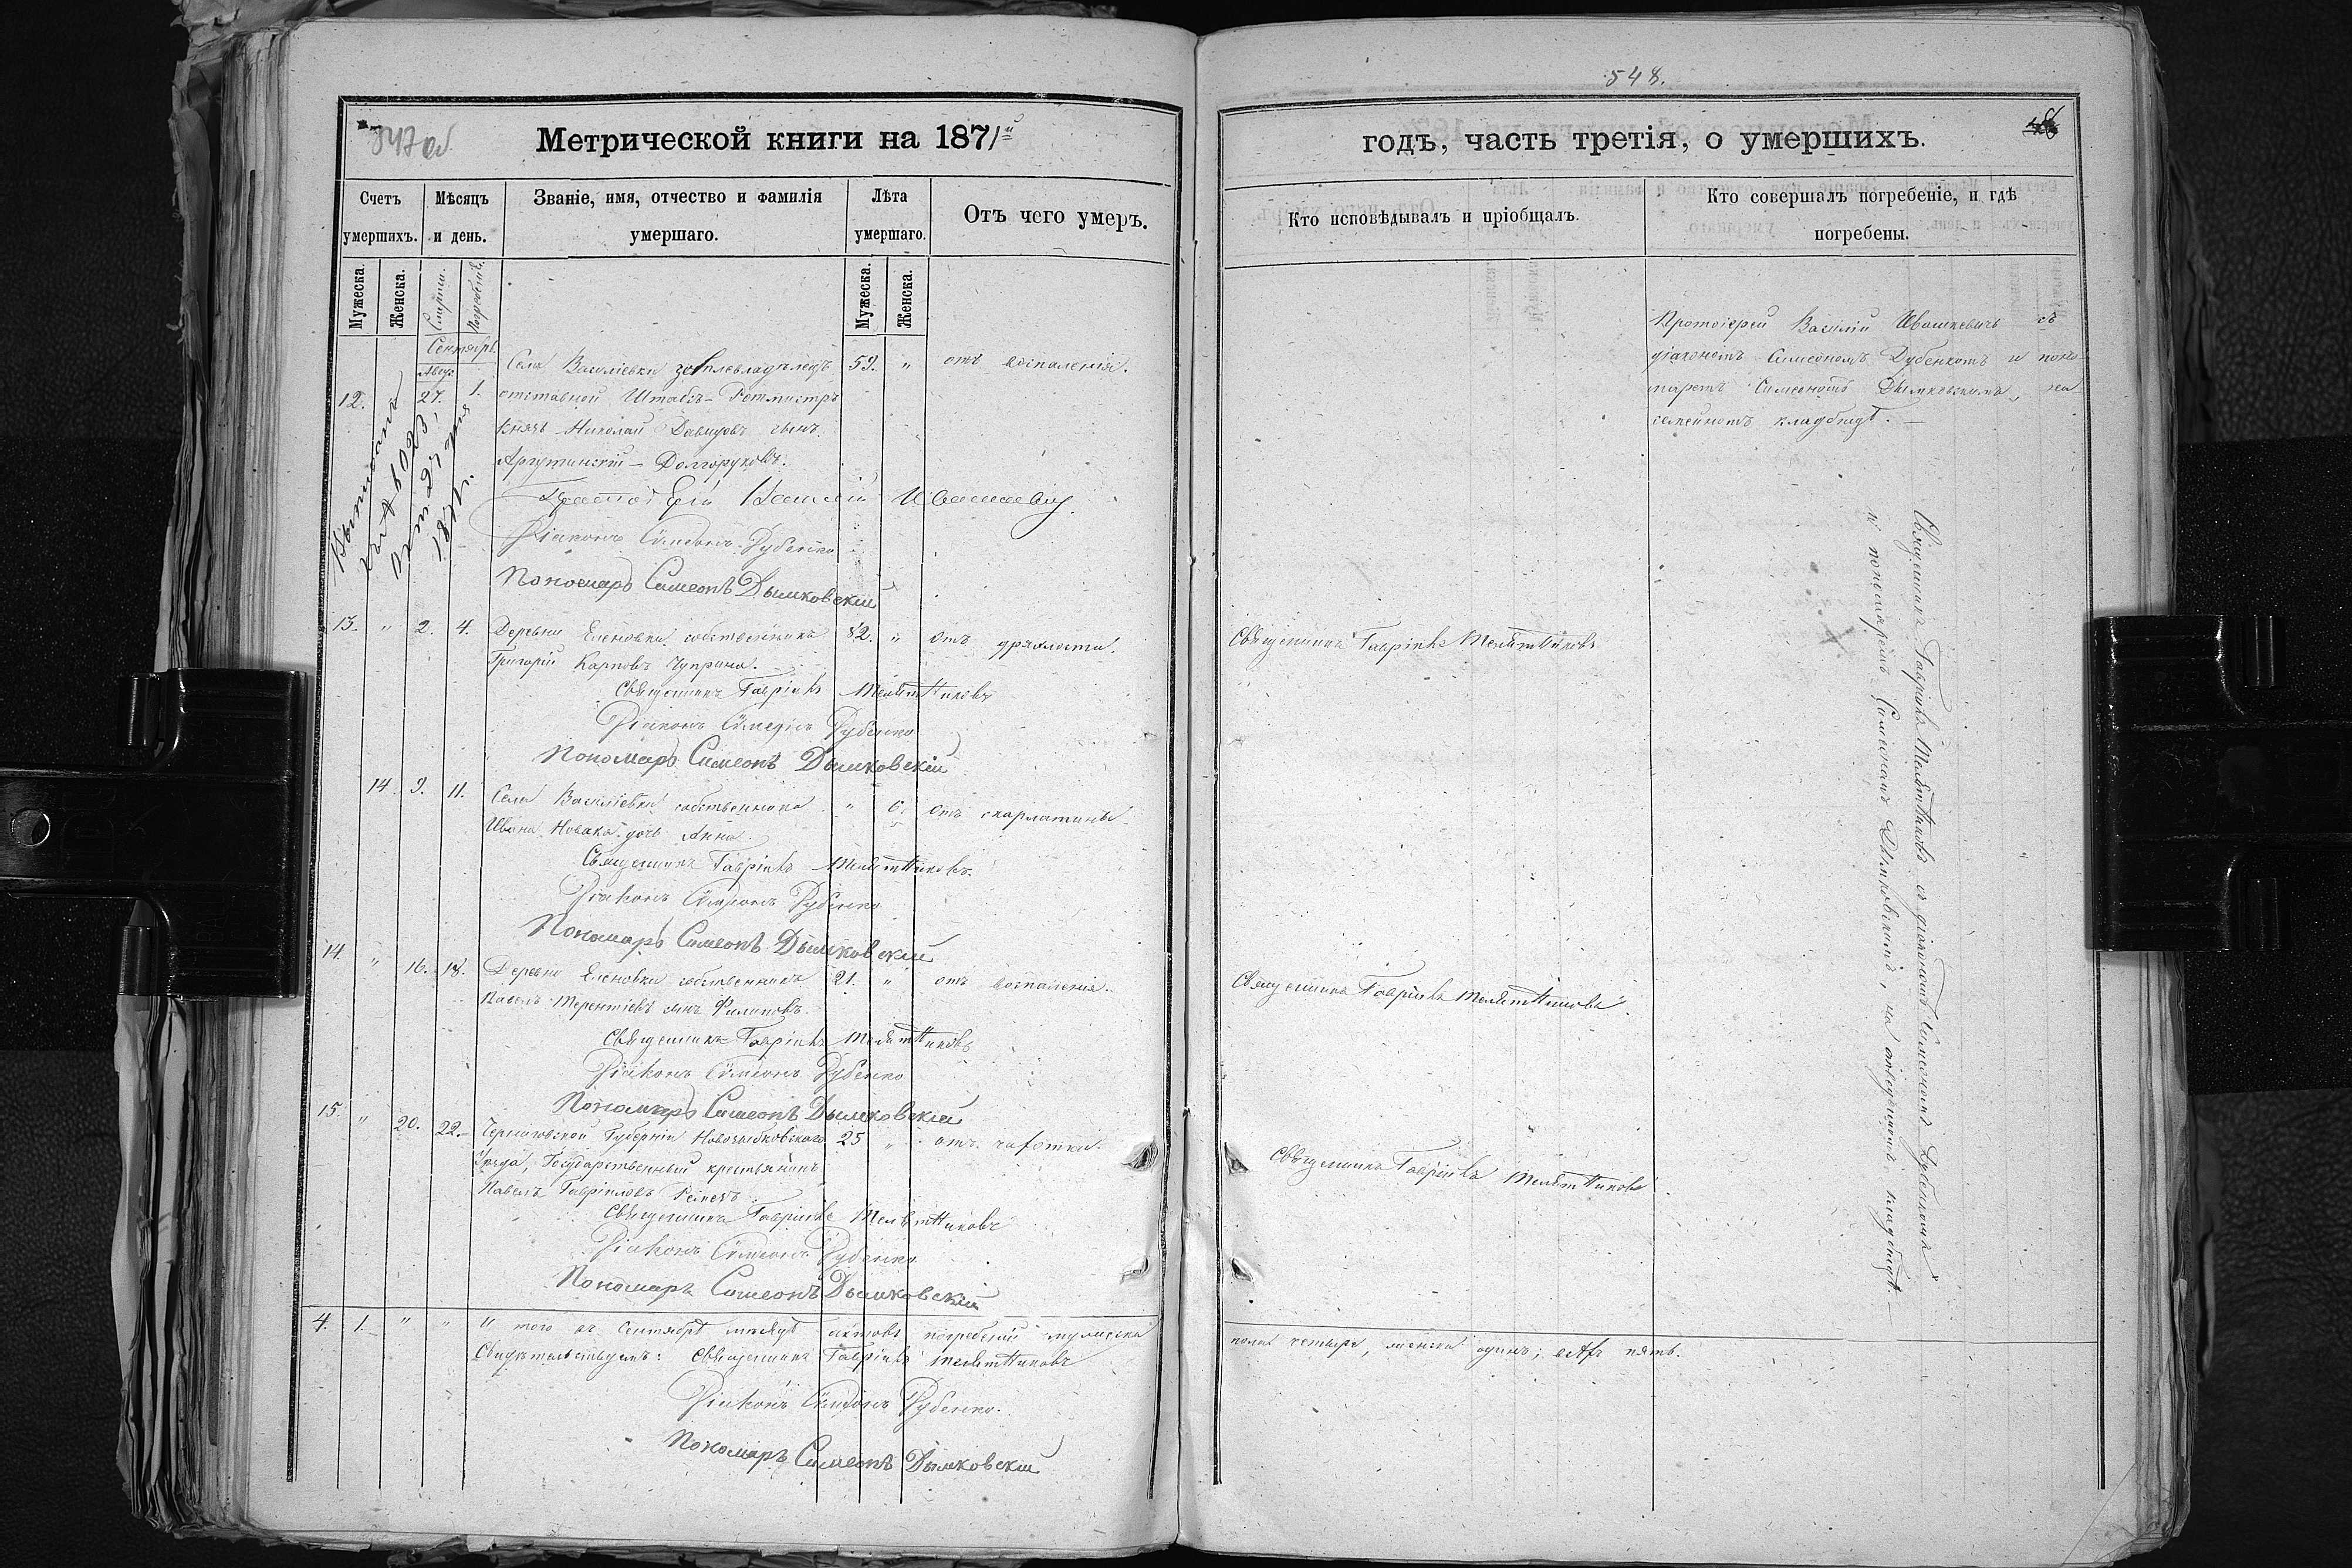 547 об
Метрической книги на 1871й
Счетъ умершихъ.
Мѣсяцъ и день.
Званіе, имя, отчество и фамилія умершаго.
Лѣта умершаго.
Отъ чего умеръ.
Мужеска.
Женска.
Смерти.
Погребенія.
Мужеска.
Женска.
Сентябрь.
Авгу:
12. 27. 1. Села Василіевки землевладѣлецъ 59. " отъ воспаленія.
отставной Штабсъ-Ротмистръ
Князь Николай Давидовъ сынъ
Аргутинскій-Долгоруковъ.
Протоіерей Василій Ивашкевичъ
Діаконъ Симеонъ Дубенко
Пономарь Симеонъ Дымковскій
13. " 2. 4. Деревни Еленовки собственникъ 82. " отъ дряхлости.
Григорій Карповъ Чуприна.
Священникъ Гавріилъ Мелѣтниковъ
Діаконъ Симеонъ Дубенко
Пономарь Симеонъ Дымковскій
14. 9. 11. Села Василіевки собственника " 6. отъ скарлатины.
Ивана Новака дочь Анна.
Священникъ Гавріилъ Мелѣтниковъ.
Діаконъ Симеонъ Дубенко
Пономарь Симеонъ Дымковскій
14. " 16. 18. Деревни Еленовки собственникъ 21. " отъ воспаленія.
Павелъ Терентіевъ сынъ Филиповъ.
Священникъ Гавріилъ Мелѣтниковъ
Діаконъ Симеонъ Дубенко
Пономарь Симеонъ Дымковскій
15. " 20. 22. Черниговской Губерніи Новозыбковскаго 25 " отъ чахотки.
Уѣзда, Государственный крестьянинъ
Павелъ Гавріиловъ
Священникъ Гавріилъ Мелѣтниковъ
Діаконъ Симеонъ Дубенко
Пономарь Симеонъ Дымковскій
4. 1. " " И того въ Сентябрѣ мѣсяцѣ актовъ погребеній мужеска
Свидѣтельствуемъ: Священникъ Гавріилъ Мелѣтниковъ
Діаконъ Симеонъ Дубенко.
Пономарь Симеонъ Дымковскій
548.
годъ, часть третія, о умершихъ.
Кто исповѣдывалъ и пріобщалъ.
Кто совершалъ погребеніе, и гдѣ погребены.
Протоіерей Василій Ивашкевичъ съ
діакономъ Симеономъ Дубенкомъ и поно-
маремъ Симеономъ Дымковскимъ, на
семейномъ кладбищѣ.
Священникъ Гавріилъ Мелѣтниковъ
Священникъ Гавріилъ Мелѣтниковъ.
Священникъ Гавріилъ Мелѣтниковъ.
Священникъ Гавріилъ Мелѣтниковъ съ діакономъ Симеономъ Дубенкомъ
и пономаремъ Симеономъ Дымковскимъ, на отведенномъ кладбищѣ.
пола четыре, женска одинъ; всѣхъ пять.